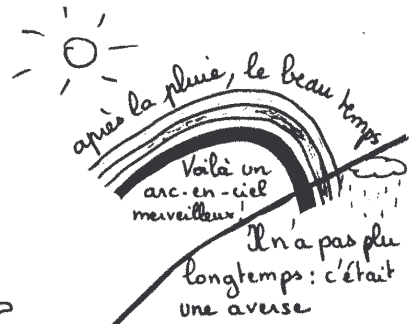 après la pluie, le beau temps
Voilà un
arc-en-ciel
merveilleux!
Il n'a pas plu
longtemps : c'était
une averse